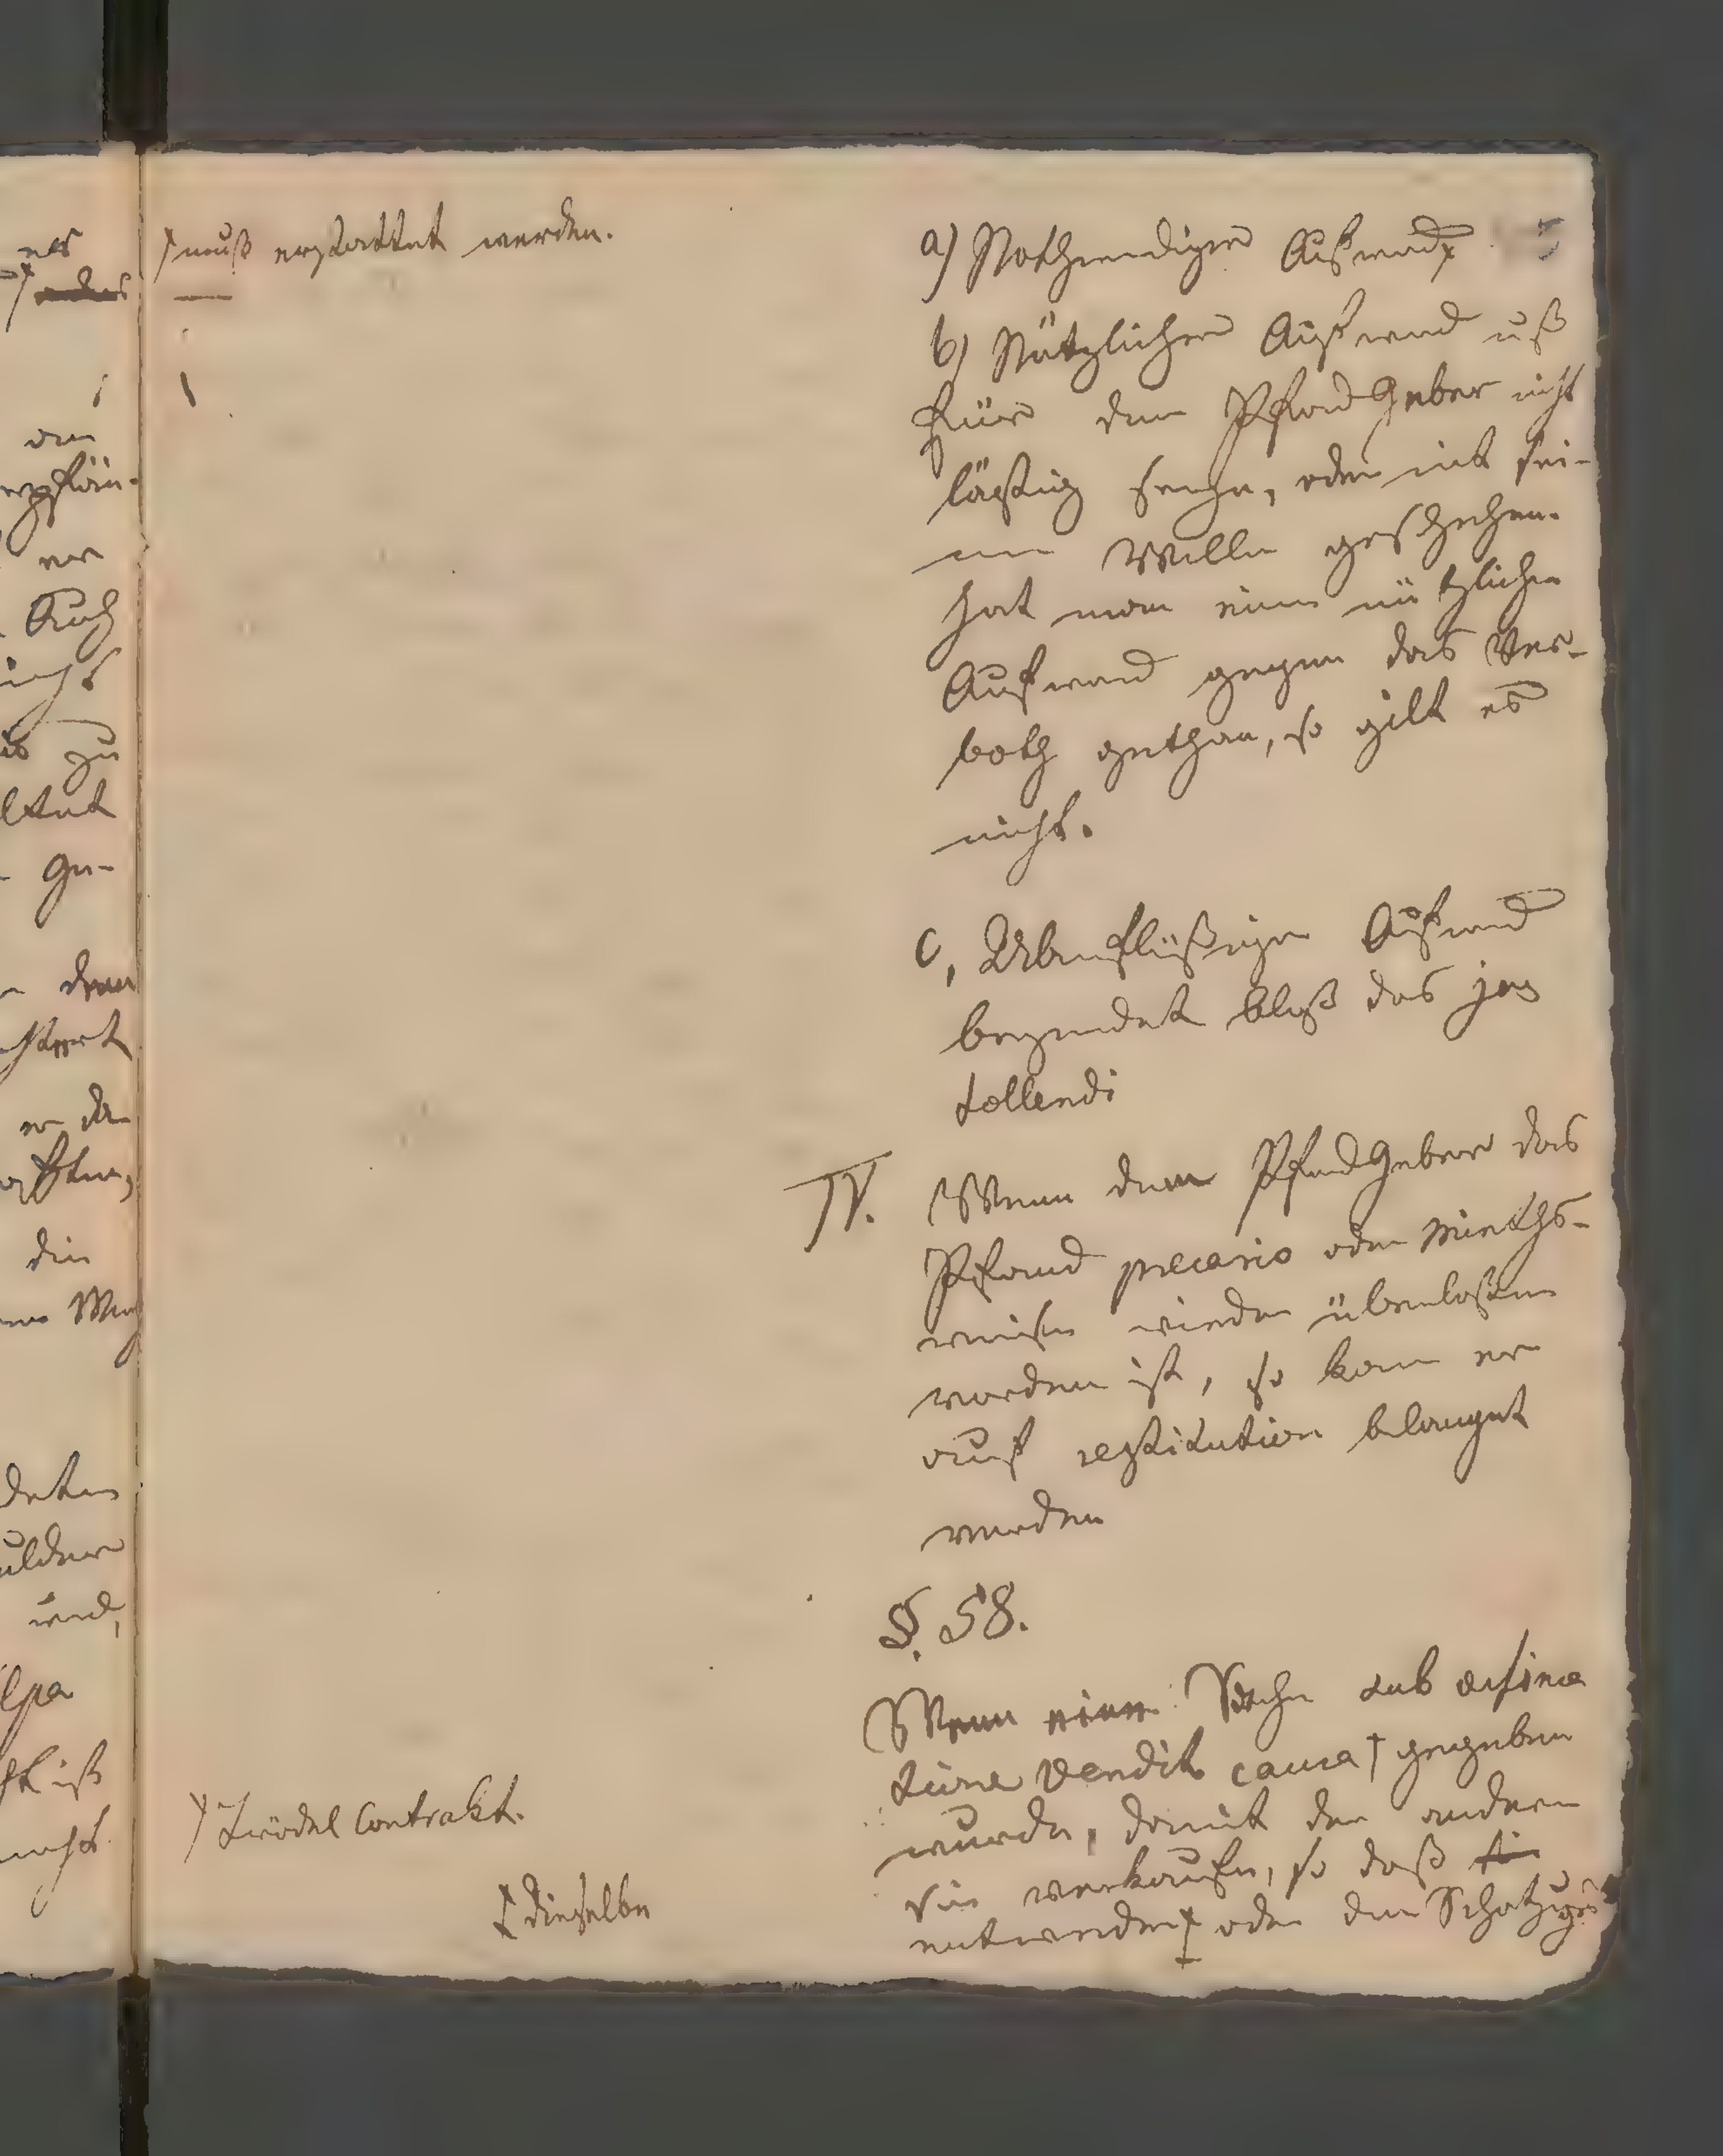 ꝉ muß erstattet werden.
a) Nothwendiger Aufwand ꝉ
b) Nützlicher Aufwand muß
für den Pfand Geber nicht
lästig seyn, oder mit sei-
nen Willen geschehen.
hat man einen nützlichen
Aufwand gegen das Ver-
both gethan, so gilt es
nicht.
c, Überflüßiger Aufwand
begründet bloß das jus
tollendi
IV. Wenn dem Pfand Geber das
Pfand precario oder Mieths-
weise wieder überlaßen
worden ist, so kann er
auf restitution belangt
werden
§. 58.
Wenn eine Sache sub aestima
tione venditi causa † gegeben
wurde, damit der andere
sie verkaufe, so daß
entweder ‡ oder den Schatzungs
† Trödel Contrakt.
‡ dieselbe